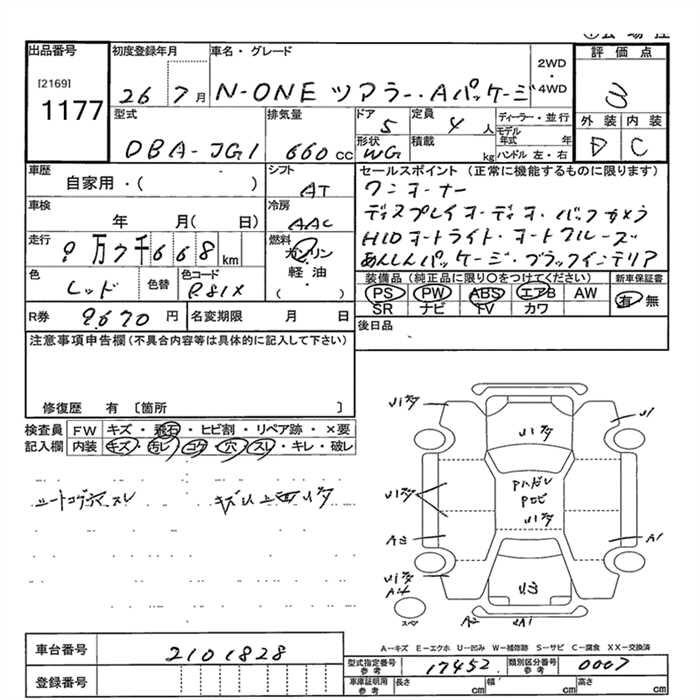 出品番号 初度登録年月 車名・グレード 評価点
[2169] 2WD・4WD
1177 26 7月 N-ONE ツアラー・Aパッケージ 3
型式 排気量 ドア 定員 ディーラー・並行 外装 内装
DBA-JG1 660cc 5 4人 モデル年式 年 D C
形状 積載 ハンドル 左・右
WG kg
車歴 シフト セールスポイント (正常に機能するものに限ります)
自家用・( ) AT ワンオーナー
車検 冷房 ディスプレイオーディオ・バックカメラ
年 月( 日) AAC HIDオートライト・オートクルーズ
走行 燃料 あんしんパッケージ・ブラックインテリア
9万7千668km ガソリン
軽油・
( )
色 色替 色コード 装備品(純正品に限り○をつけてください) 新車保証書
レッド R81X PS PW ABS エアB AW 有・無
SR ナビ TV カワ
R券 9,670円 名変期限 月 日 後日品
注意事項申告欄(不具合内容等は具体的に記入して下さい)
修復歴 有〔箇所 〕
検査員 FW キズ・飛石・ヒビ割・リペア跡・×要
記入欄 内装 キズ・汚レ・コゲ・穴・スレ・キレ・破レ
シートコゲ穴スレ
U1ｷｽﾞ U1
U1ｷｽﾞ
U1ｷｽﾞ
U1ｷｽﾞ
A2 A1
U1ｷｽﾞ
A4 U3
スペア A2 A1
A－キズ E－エクボ U－凹み W－補修跡 S－サビ C－腐食 XX－交換済
車台番号 2101828
型式指定番号 参考 17452 類別区分番号 参考 0007
登録番号
車庫証明用 参考 長さ cm 幅 cm 高さ cm